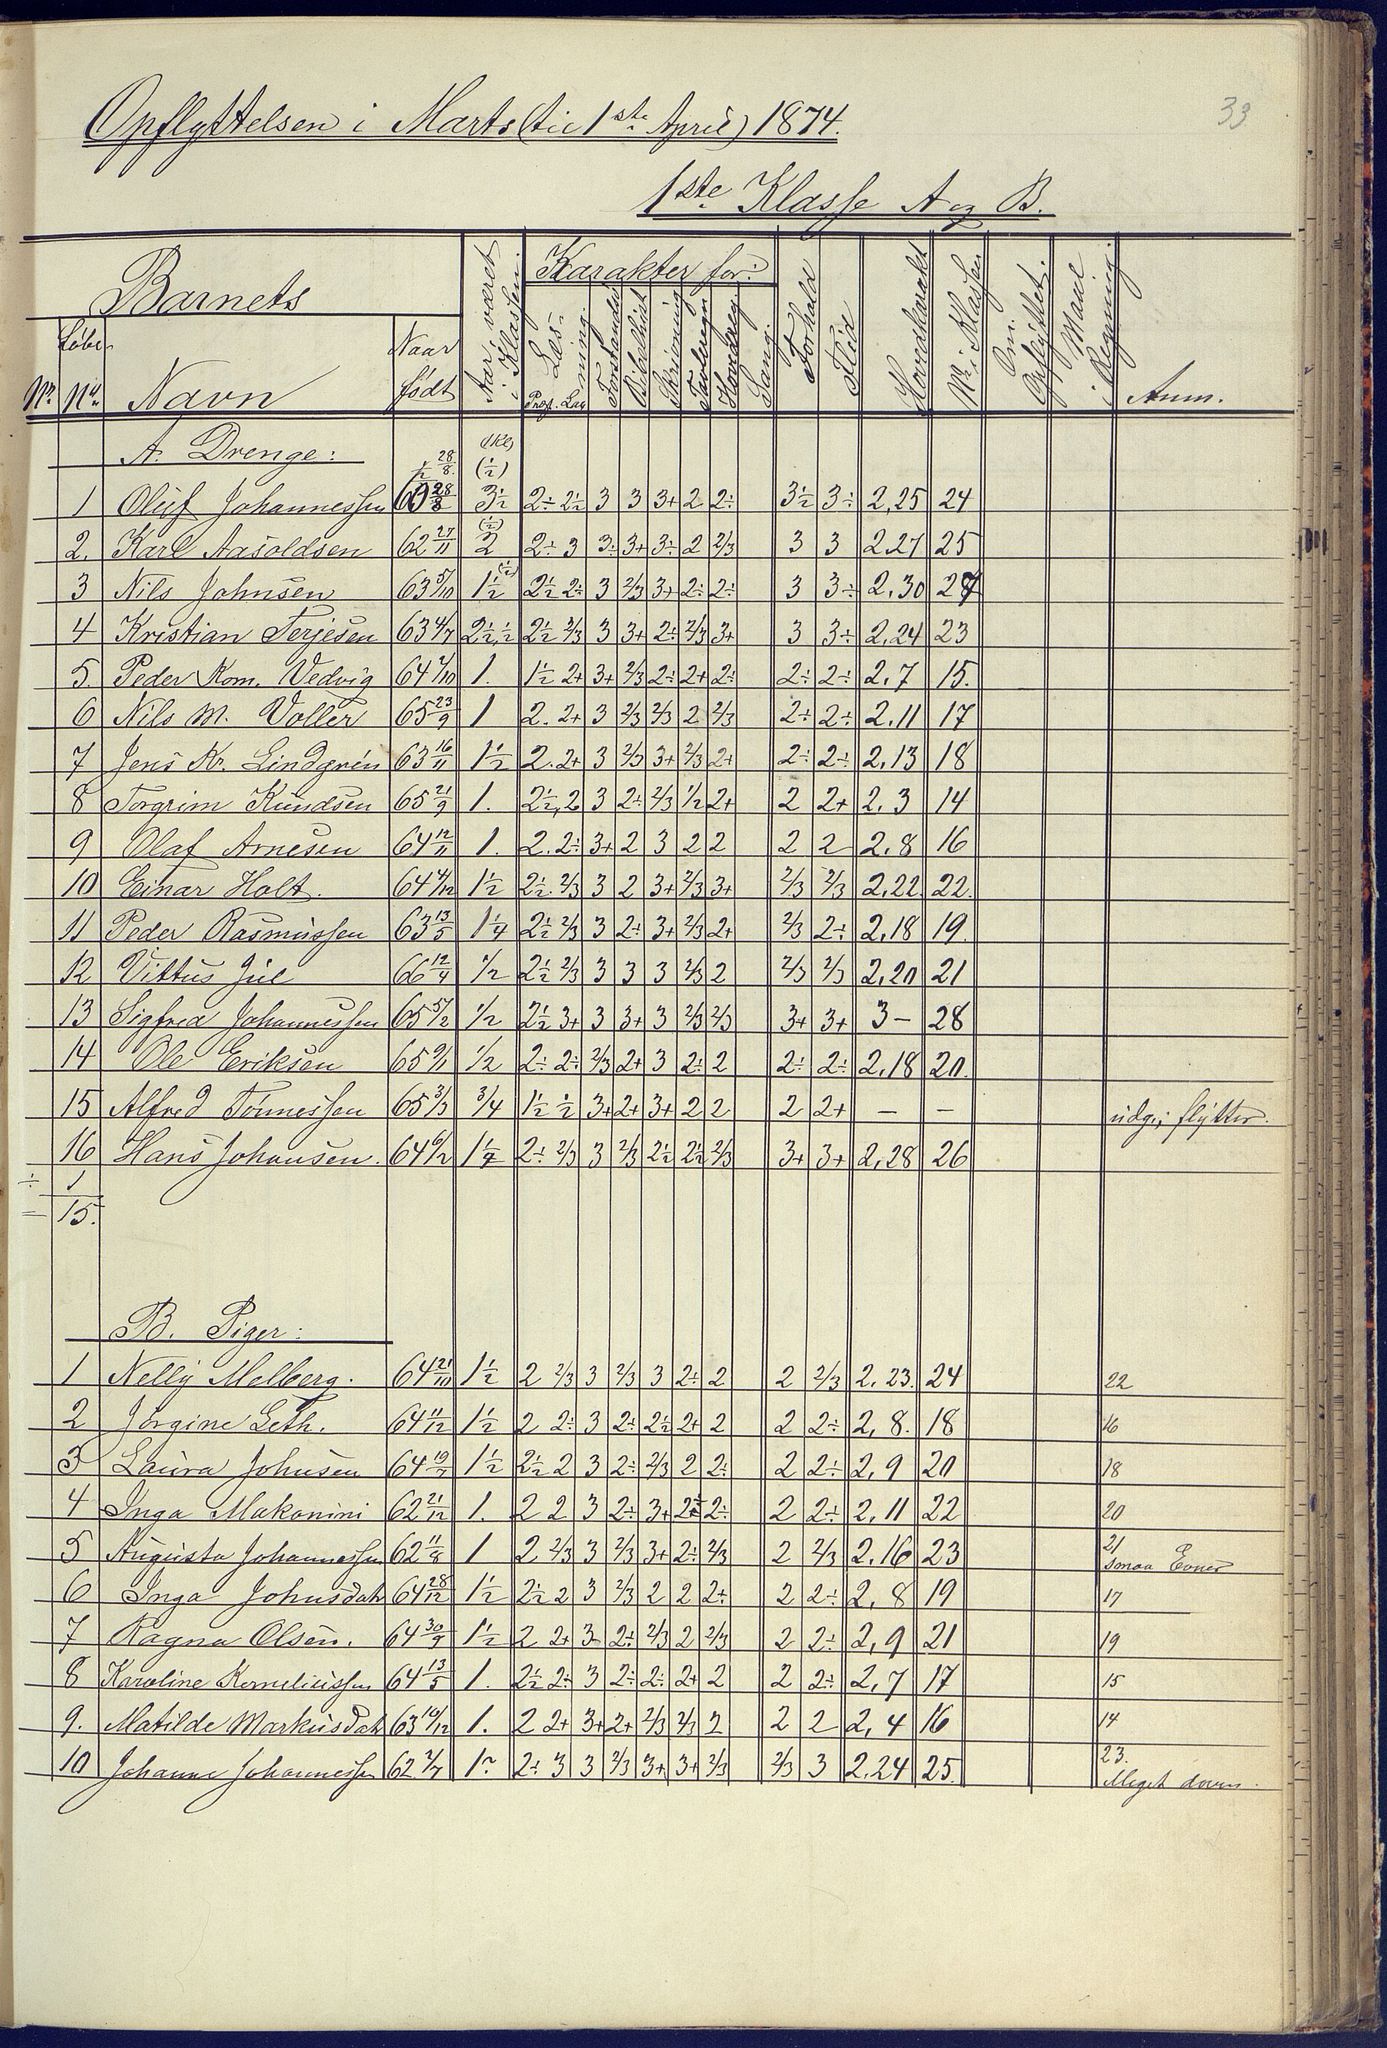 33
Opflyttelsen i Marts (til 1ste April) 1874.
1ste Klasse A og B.
Barnets
Aar været i Klassen.
Karakter for:
Forhold
Flid
Hovedkarakt
Nr i Klassen
Om Opflyttet.
i Regning.
Anm.
Nr. Løbe Nr. Navn Naar født
Læsning. Forstandsø Bibelhist Skrivning Tavleregn Hovedreg. Sang.
A. Drenge:
1 Oluf Johannessen 60 28/8 3½ 2÷ 2½ 3 3 3+ 2 2÷ 3½ 3÷ 2,25 24
2. Karl Aasoldsen 62 27/11 2 2÷ 3 3÷ 3+ 3÷ 2 2/3 3 3 2,27 25
3 Nils Johnsen 63 5/10 1½ 2½ 2÷ 3 2/3 3+ 2÷ 2÷ 3 3÷ 2,30 27
4 Kristian Terjesen 63 4/7 2½ 2½ 2/3 3 3+ 2÷ 2/3 3+ 3 3÷ 2,24 23
5 Peder Kom. Vedvig 64 4/10 1. 1½ 2+ 3+ 2/3 2÷ 2+ 2÷ 2÷ 2÷ 2,7 15.
6 Nils M. Voller 65 23/9 1 2. 2+ 3 2/3 2/3 2 2/3 2÷ 2÷ 2,11 17
7 Jens Kr. Lindgren 63 16/11 1½ 2. 2+ 3 2/3 3+ 2/3 2+ 2÷ 2÷ 2,13 18
8 Torgrim Knudsen 65 21/9 1. 2½ 2 3 2÷ 2/3 1/2 2+ 2 2+ 2,3 14
9 Olaf Arnesen 64 12/11 1. 2. 2÷ 3+ 2 3 2 2 2 2 2,8 16
10 Einar Holt. 64 4/12 1½ 2½ 2/3 3 2 3+ 2/3 3+ 2/3 2/3 2,22 22.
11 Peder Rasmussen 63 13/5 1¼ 2½ 2/3 3 2÷ 3+ 2/3 2+ 2/3 2÷ 2,18 19.
12 Vittus Jul 66 12/4 ½ 2½ 2/3 3 3 3 2/3 2 2/3 2/3 2,20 21
13 Sigfred Johannessen 65 5/2 ½ 2½ 3+ 3 3+ 3 2/3 2/3 3+ 3+ 3— 28
14 Ole Eriksen 65 ½ 2÷ 2÷ 2/3 2+ 3 2÷ 2 2÷ 2÷ 2,18 20.
15 Alfred Tönnessen 65 3/3 ¾ 1½ ½ 3+ 2+ 3+ 2 2 2 2+ — — udg.; flytter.
16 Hans Johansen. 64 6/2 1¼ 2÷ 2/3 3 2/3 2½ 2½ 2/3 3+ 3+ 2,28 26
÷ 1
= 15.
B. Piger:
1 Nelly Melberg. 64 21/10 1½ 2 2/3 3 2/3 3 2÷ 2 2 2/3 2,23. 24 22
2 Jörgine Leth. 64 11/12 1½ 2 2÷ 3 2÷ 2½ 2+ 2 2 2÷ 2,8. 18 16
3 Laura Johnsen 64 19/7 1½ 2½ 2 3 2÷ 2/3 2 2÷ 2 2÷ 2,9 20 18
4 Inga Makonini 62 21/12 1. 2 2 3 2÷ 3+ 2÷ 2÷ 2 2÷ 2,11 22 20
5 Augusta Johannessen 62 11/8 1 2 2/3 3 2/3 3+ 2÷ 2/3 2 2/3 2,16 23 21
Smaa Evner
6 Inga Johnsdatr 64 28/12 1½ 2½ 2 3 2/3 2 2 2+ 2 2÷ 2,8 19 17
7 Ragna Olsen. 64 30/9 1½ 2 2+ 3 2÷ 2/3 2 2/3 2 2÷ 2,9 21 19
8 Karoline Korneliussen 64 13/5 1. 2½ 2÷ 3 2÷ 2÷ 2+ 2 2 2÷ 2,7 17 15
9. Matilde Markusdatr 63 19/12 1. 2 2+ 3+ 2+ 2/3 2/3 2 2 2 2,4 16 14
10 Johanne Johannessen 62 2/7 1 2÷ 3 3 2/3 3+ 3+ 2/3 2/3 3 2,24 25. 23.
Meget doven.